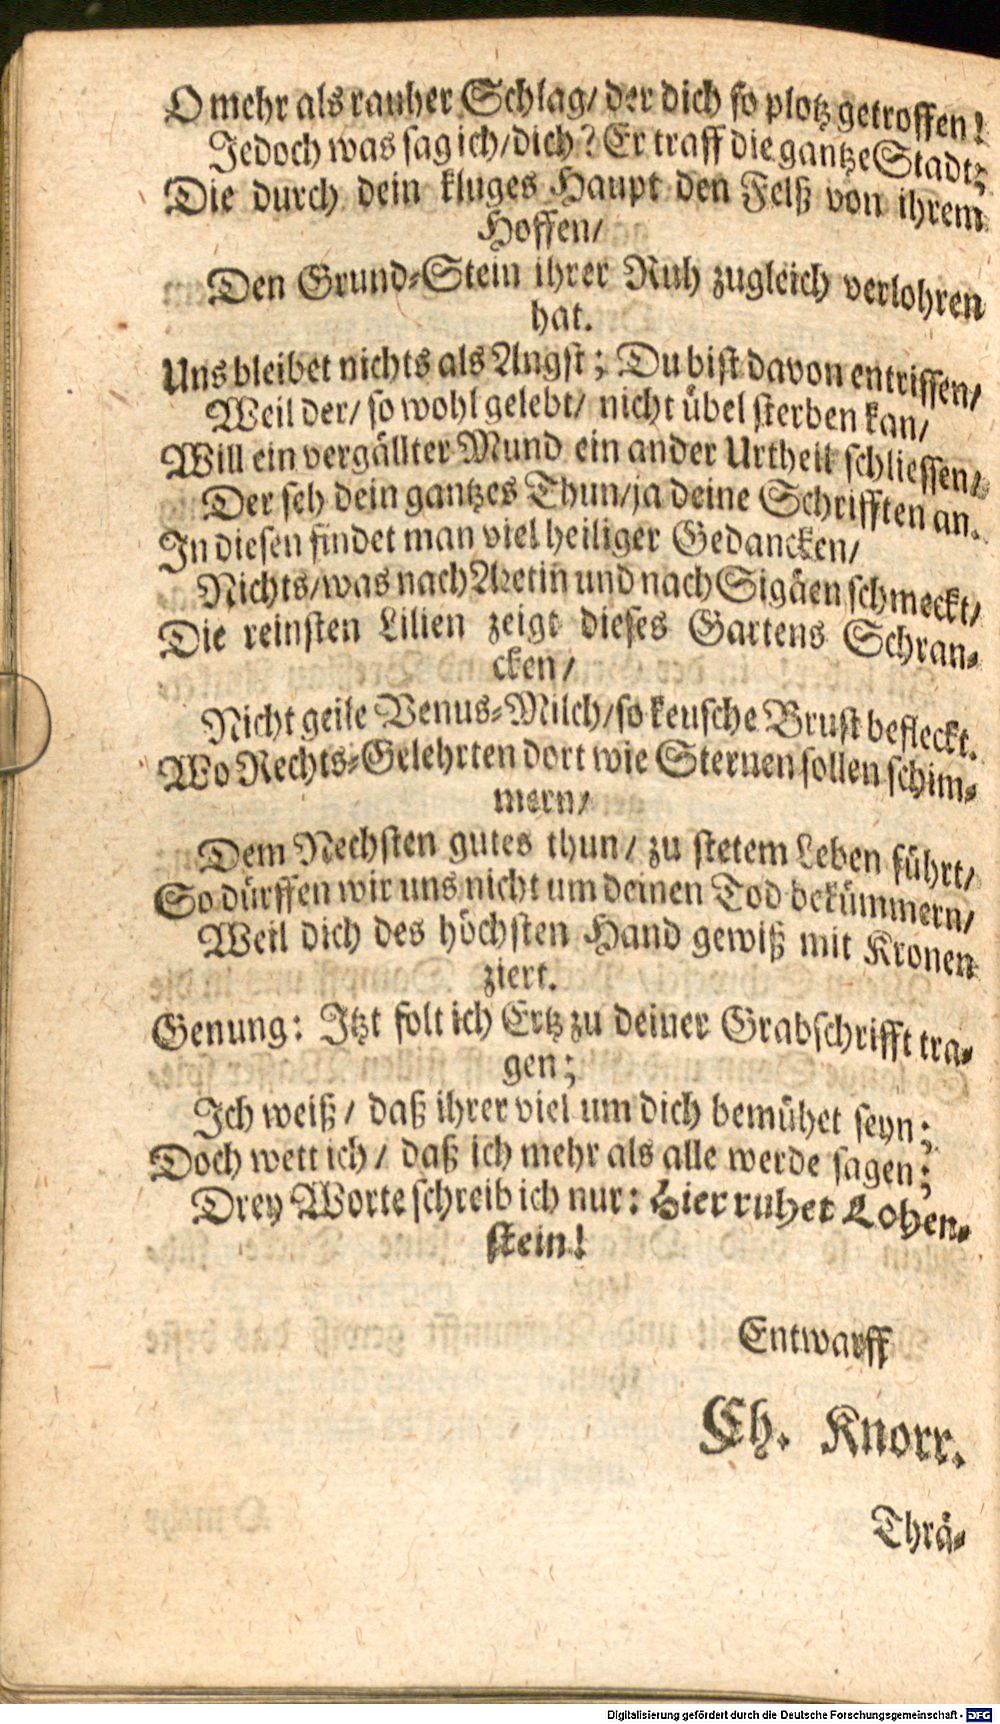 O mehr als rauher Schlag/ der dich so plotz getroffen!
Jedoch was sag ich/dich? Er traff die gantze Stadt;
Die durch dein kluges Haupt den Felß von ihrem
Hoffen/
Den Grund-Stein ihrer Ruh zugleich verlohren
hat.
Uns bleibet nichts als Angst; Du bist davon entrissen/
Weil der/ so wohl gelebt/ nicht übel sterben kan/
Will ein vergällter Mund ein ander Urtheil schliessen/
Der seh dein gantzes Thun/ja deine Schrifften an.
In diesen findet man viel heiliger Gedancken/
Nichts/was nach Aretin und nach Sigäen schmeckt/
Die reinsten Lilien zeigt dieses Gartens Schran-
cken/
Nicht geile Venus-Milch/so keusche Brust befleckt.
Wo Rechts-Gelehrten dort wie Sternen sollen schim-
mern/
Dem Nechsten gutes thun/ zu stetem Leben führt/
So dürffen wir uns nicht um deinen Tod bekümmern/
Weil dich des höchsten Hand gewiß mit Kronen
ziert.
Genung: Itzt solt ich Ertz zu deiner Grabschrifft tra-
gen;
Ich weiß/ daß ihrer viel um dich bemühet seyn;
Doch wett ich/ daß ich mehr als alle werde sagen;
Drey Worte schreib ich nur: Hier ruhet Lohen-
stein!
Entwarff
Ch. Knorr.
Thrä-
Digitalisierung gefördert durch die Deutsche Forschungsgemeinschaft - DFG